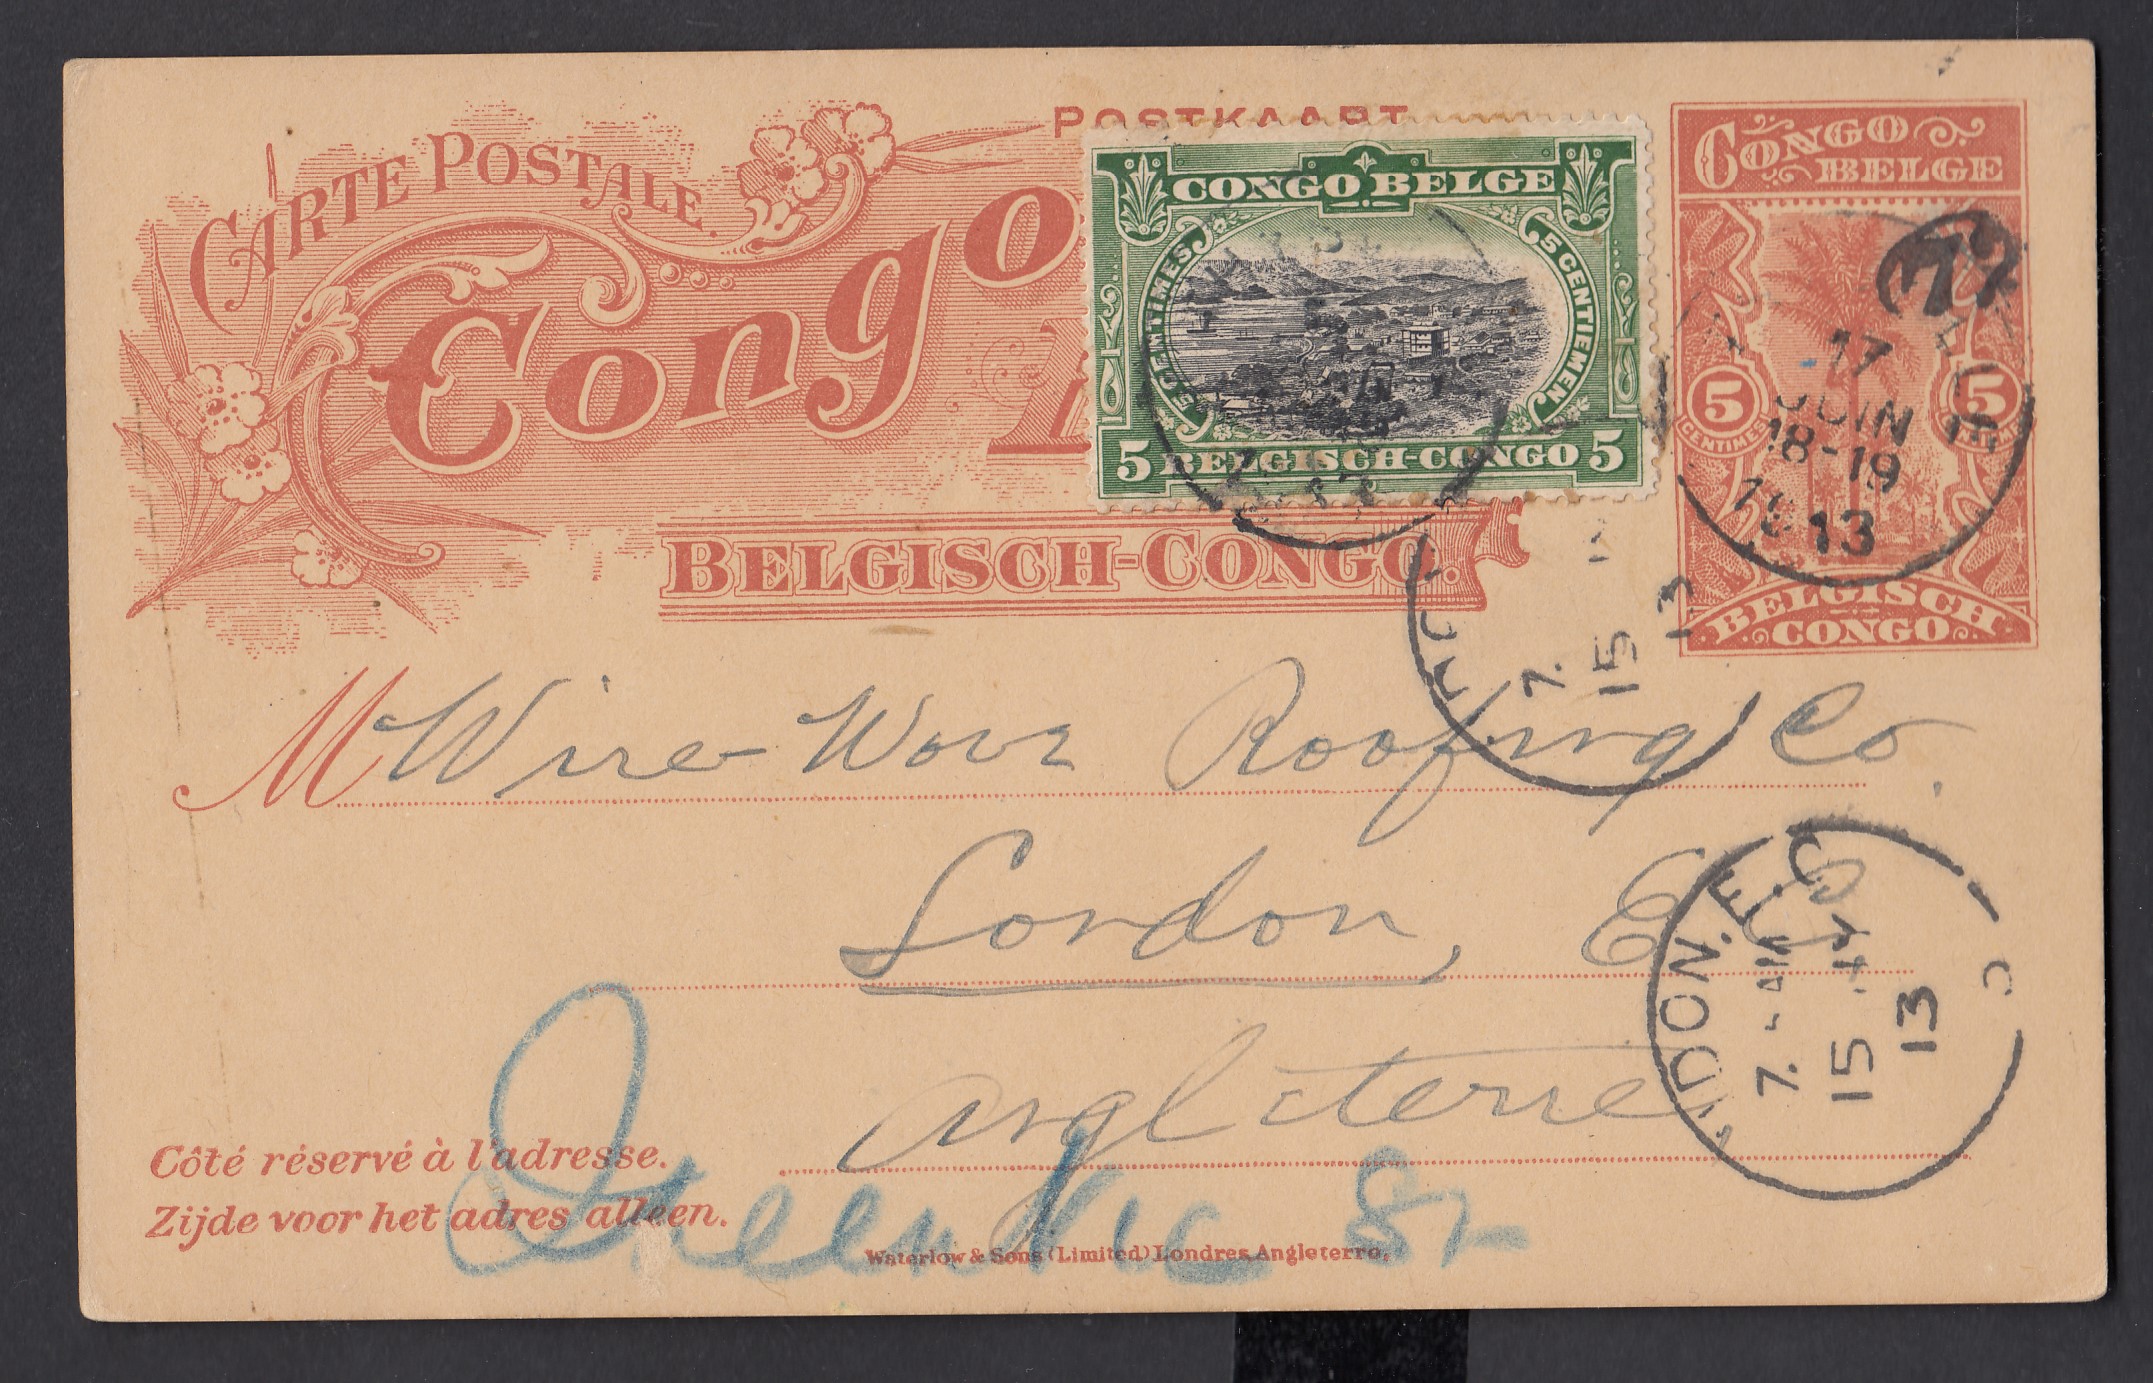 CARTE POSTALE.
POSTKAART
Congo
BELGISCH-CONGO.
CONGO BELGE
5 CENTIMES
5 CENTIEMEN
5 BELGISCH-CONGO 5
CONGO
BELGE
5
CENTIMES
5
BELGISCH
CONGO
17
JUIN
18-19
1913
13
7.
15
13
M Wire-Wove Roofing Co.
London, E.C.
Angleterre
LONDON. E.C
7. AM
15 JY
13
Côté réservé à l'adresse.
Zijde voor het adres alleen.
Queen Vic St
Waterlow & Sons (Limited) Londres, Angleterre.